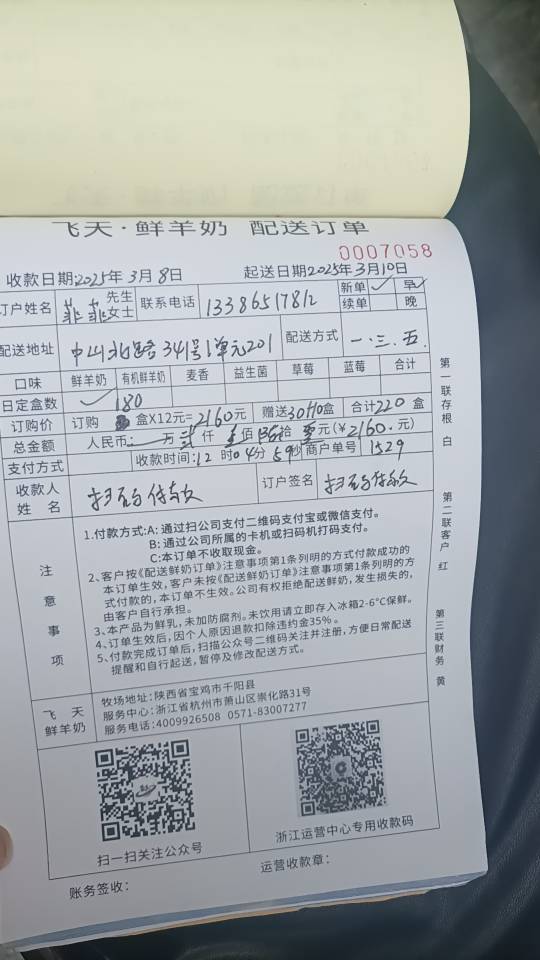 飞天·鲜羊奶 配送订单
0007058
收款日期:2025年3月8日 起送日期2025年3月10日
订户姓名 菲菲 先生 女士 联系电话 13386517812 新单 ✓ 早 续单 晚
配送地址 中山北路341号1单元201 配送方式 一.三.五.
口味 鲜羊奶 有机鲜羊奶 麦香 益生菌 草莓 蓝莓 合计
日定盒数 ✓ 180
订购价 订购 盒X12元=2160元 赠送30+10盒 合计220盒
总金额 人民币: 万贰仟壹佰陆拾零元(¥2160.元)
支付方式 收款时间:12时04分59秒 商户单号 1529
收款人姓名 扫码付款 订户签名 扫码付款
注意事项
1.付款方式:A: 通过扫公司支付二维码支付宝或微信支付。
B: 通过公司所属的卡机或扫码机打码支付。
C:本订单不收取现金。
2、客户按《配送鲜奶订单》注意事项第1条列明的方式付款成功的
本订单生效,客户未按《配送鲜奶订单》注意事项第1条列明的方
式付款的,本订单不生效。公司有权拒绝配送鲜奶,发生损失的,
由客户自行承担。
3、本产品为鲜乳,未加防腐剂。未饮用请立即存入冰箱2-6℃保鲜。
4、订单生效后,因个人原因退款扣除违约金35%。
5、付款完成订单后,扫描公众号二维码关注并注册,方便日常配送
提醒和自行起送,暂停及修改配送方式。
飞天鲜羊奶
牧场地址:陕西省宝鸡市千阳县
服务中心:浙江省杭州市萧山区崇化路31号
服务电话:4009926508 0571-83007277
扫一扫关注公众号
浙江运营中心专用收款码
账务签收:
运营收款章:
第一联存根 白
第二联客户 红
第三联财务 黄